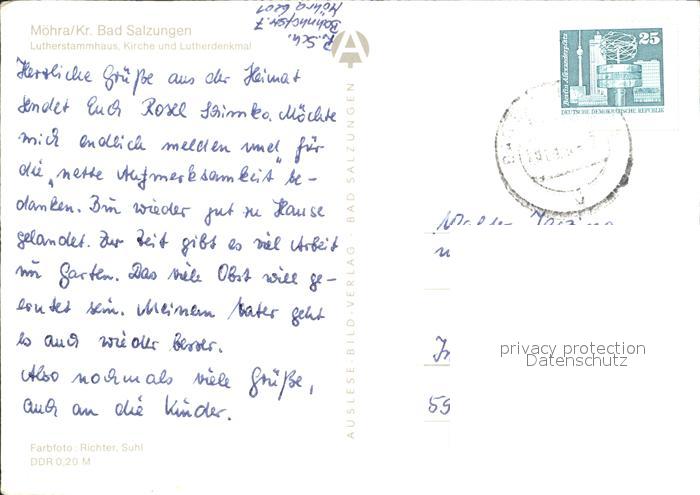 Möhra/Kr. Bad Salzungen
Lutherstammhaus, Kirche und Lutherdenkmal
R. Sch.
Bahnhofstr. 7
Möhra 6201
Herzliche Grüße aus der Heimat
sendet Euch Rosel Schimko. Möchte
mich endlich melden und für
die „nette Aufmerksamkeit" be-
danken. Bin wieder gut zu Hause
gelandet. Zur Zeit gibt es viel Arbeit
im Garten. Das viele Obst will ge-
erntet sein. Meinem Vater geht
es auch wieder besser.
Also nochmals viele Grüße,
auch an die Kinder.
Farbfoto: Richter, Suhl
DDR 0,20 M
AUSLESE-BILD-VERLAG BAD SALZUNGEN
A
25
Berlin, Alexanderplatz
DEUTSCHE DEMOKRATISCHE REPUBLIK
59
privacy protection
Datenschutz